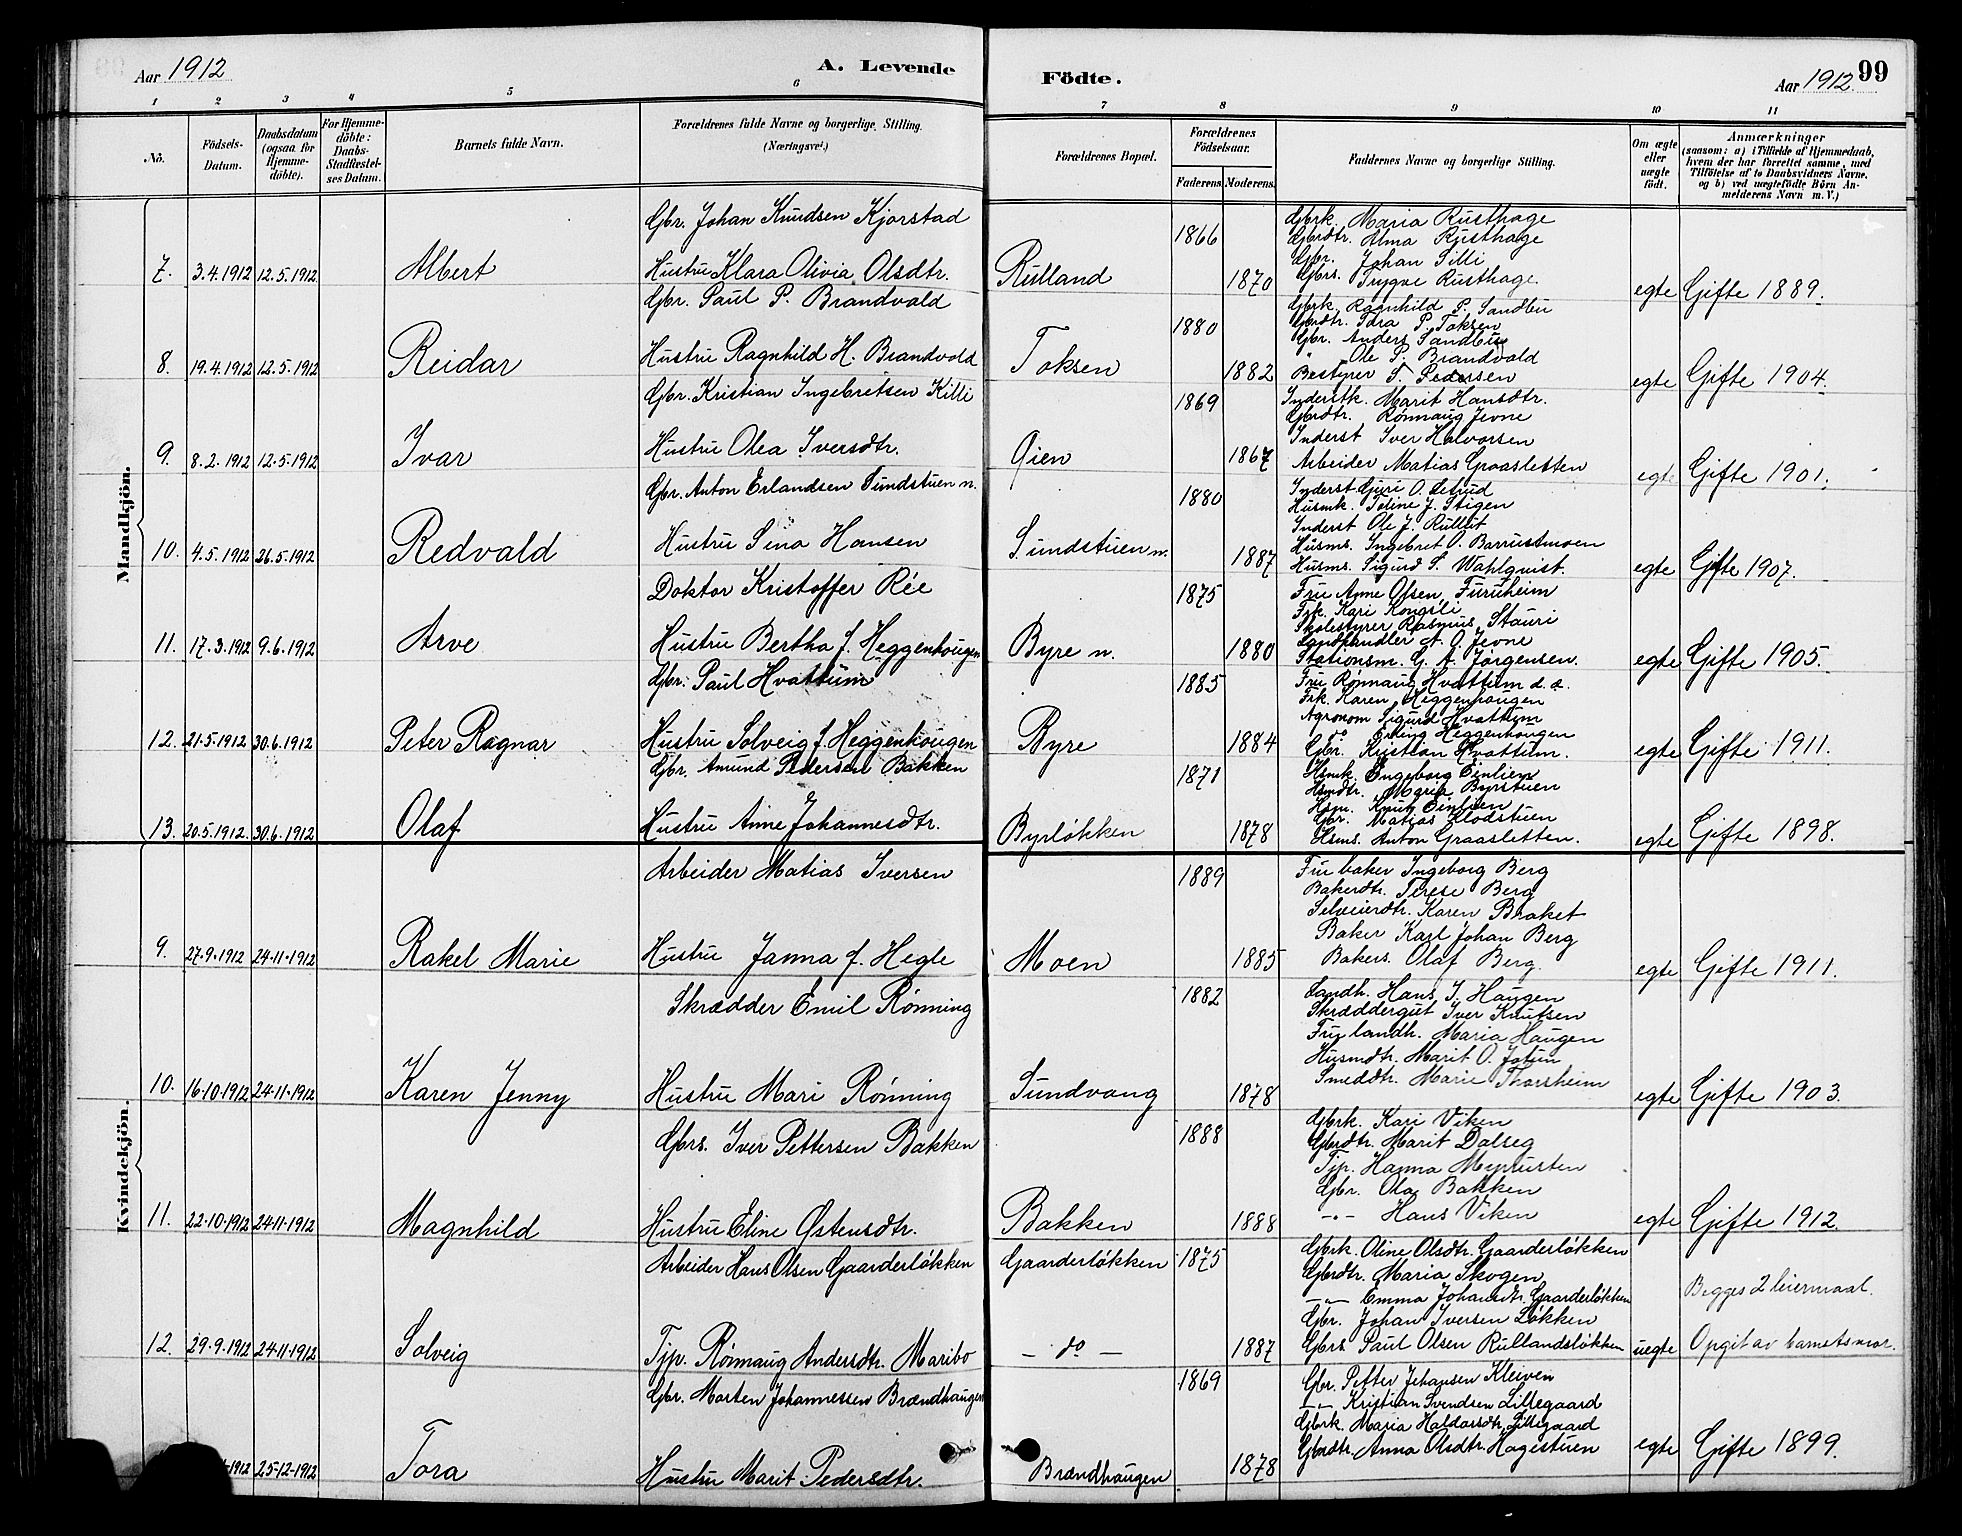 Aar 1912
A. Levende
Födte.
Aar 1912. 99
1 2 3 4 5 6 7 8 9 10 11
Nö.
Födsels-Datum.
Daabsdatum (ogsaa for Hjemmedöbte).
For Hjemmedöbte: Daabs-Stadfæstelses Datum.
Barnets fulde Navn.
Forældrenes fulde Navne og borgerlige Stilling. (Næringsvei.)
Forældrenes Bopæl.
Forældrenes Födselsaar.
Faderens. Moderens.
Faddernes Navne og borgerlige Stilling.
Om ægte eller uægte födt.
Anmærkninger (saasom: a) i Tilfælde af Hjemmedaab, hvem der har forrettet samme, med Tilföielse af to Daabsvidners Navne, og b) ved uægtefödte Börn Anmelderens Navn m. V.)
Mandkjön.
Gbr. Johan Knudsen Kjorstad
1866
Gbrk. Maria Rusthage
Gbrdtr. Alma Rusthage
Gbr. Johan Silli
7. 3.4.1912 12.5.1912 Albert Hustru Klara Olivia Olsdtr. Rulland 1870 Gbrs. Trygve Rusthage. egte Gifte 1889.
Gbr. Paul P. Brandvold
1880
Gbrk. Ragnhild P. Sandbu
Gbrdtr. Tora P. Toksen
Gbr. Anders Sandbu
" Ole P. Brandvald
8. 19.4.1912 12.5.1912 Reidar Hustru Ragnhild H. Brandvold Toksen 1882 Bestyrer T. Pedersen egte Gifte 1904.
Gbr. Kristian Ingebretsen Killi
1869
Inderstk. Marit Hansdtr.
Gbrdtr. Rønnaug Jevne
Inderst Iver Halvorsen
9. 8.2.1912 12.5.1912 Ivar Hustru Olea Iversdtr. Øien 1867 Arbeider Matias Graasletten egte Gifte 1901.
Gbr. Anton Erlandsen Sundstuen n.
1880
Inderst Guri O.
Husmk. Teline J. Stigen
Inderst Ole J. Rullut
Husms. Ingebret O. Barrustmoen
10. 4.5.1912 26.5.1912 Redvald Hustru Sina Hansen Sundstuen n. 1887 Husms. Sigurd S. Wahlquist. egte Gifte 1907.
Doktor Kristoffer Rée
1875
Fru Anne Olsen, Furuheim
Frk. Kari Kongsli
Skolestyrer Rasmus Stauri
Landhandler A. O. Jevne
11. 17.3.1912 9.6.1912 Arve Hustru Bertha f. Heggenhougen Byre n. 1880 Stationsm. G. A. Jørgensen. egte Gifte 1905.
Gbr. Paul Hvattum
1885
Fru Rønnaug Hvattum d. æ.
Frk. Karen Heggenhougen
Agronom Sigurd Hvattum
do Erling Heggenhougen
12. 21.5.1912 30.6.1912 Peter Ragnar Hustru Solveig f. Heggenhougen Byre 1884 Gbr. Kristian Hvattum. egte Gifte 1911.
Gbr. Amund Pedersen Bakken
1871
Hsmk. Engeborg Einlien
Hsmdtr. Maria Byrstuen
Hsm. Knut Einlien
Gbr. Matias Klodstuen
13. 20.5.1912. 30.6.1912 Olaf Hustru Anne Johannesdtr. Byrløkken 1878 Hsms. Anton Graasletten. egte Gifte 1898.
Kvindekjön.
Arbeider Matias Iversen
1889
Fru baker Ingeborg Berg
Bakerdtr. Terese Berg
Selveierdtr. Karen Braket
Baker Karl Johan Berg
9. 27.9.1912 24.11.1912 Rakel Marie Hustru Janna f. Hegle Moen 1885 Bakers. Olaf Berg. egte Gifte 1911.
Skrædder Emil Rønning
1882
Landh. Hans J. Haugen
Skræddergut Iver Knutsen
Fru landh. Maria Haugen
Husmdtr. Marit O. Jotun
10. 16.10.1912 24.11.1912 Karen Jenny Hustru Mari Rønning Sundvang 1878 Smeddtr. Marie Thorsheim egte Gifte 1903.
Gbrs. Iver Pettersen Bakken
1888
Gbrk. Kari Viken
Gbrdtr. Marit Dalseg
Tjp. Hanna Myrusten
Gbr. Ola Bakken
11. 22.10.1912 24.11.1912 Magnhild Hustru Eline Østensdtr. Bakken 1888 -"- Hans Viken egte Gifte 1912.
Arbeider Hans Olsen Gaarderløkken Gaarderløkken 1875
Gbrk. Oline Olsdtr. Gaarderløkken
Gbrdtr. Maria Skogen
-"- Emma Johansdtr. Gaarderløkken
Gbr. Johan Iversen Løkken
Begges 2 leiermaal.
12. 29.9.1912 24.11.1912 Solveig Tjp. Rønnaug Andersdtr. Maribo - do - 1887 Gbrs. Paul Olsen Rullandsløkken uegte Opgit av barnets mor.
Gbr. Morten Johannessen Brændhaugen
1869
Gbr. Petter Johansen Kleiven
-"- Kristian Svendsen Lillegaard
Gbrk. Maria Haldorsdtr. Lillegaard
1912 25.12.1912 Tora Hustru Marit Pedersdtr. Brændhaugen 1878 Gbrdtr. Anna Olsdtr. Hagestuen egte Gifte 1899.